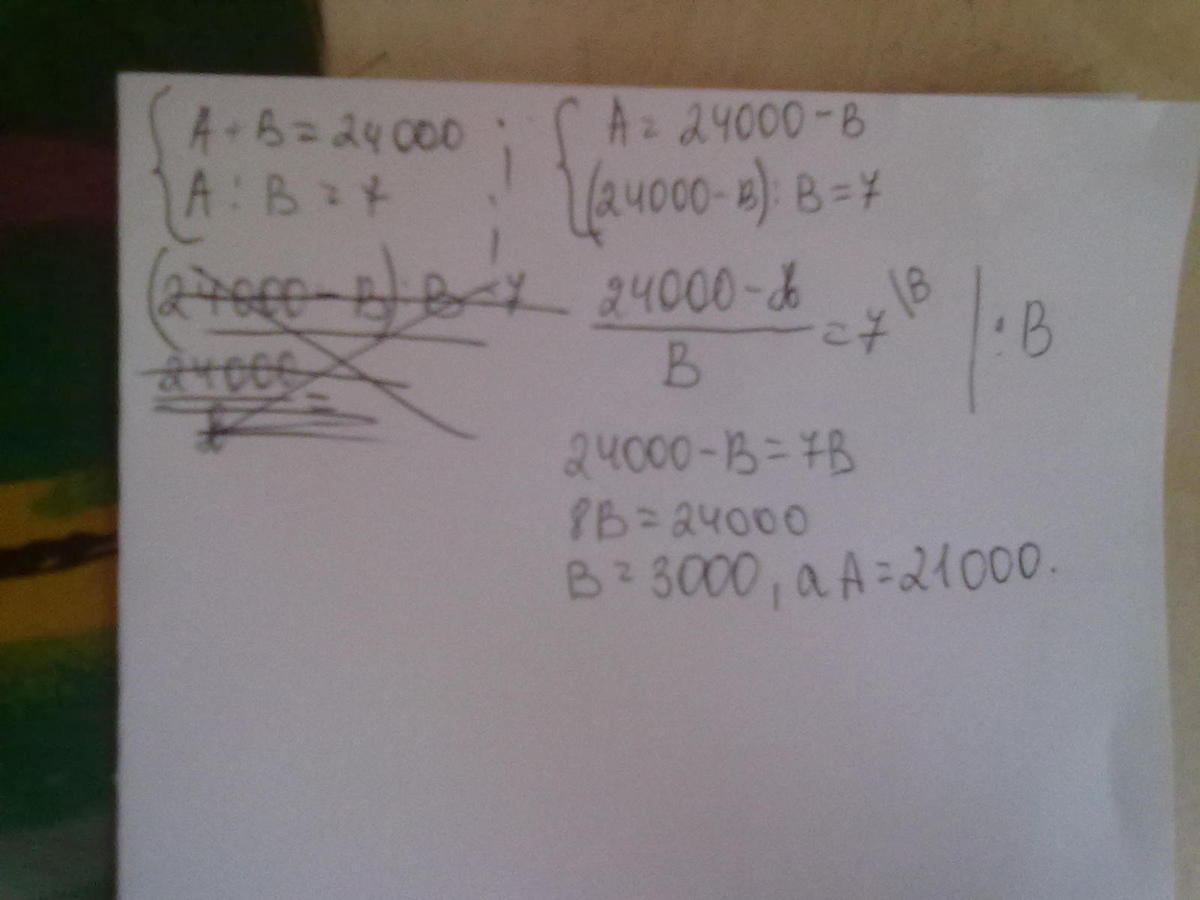 A + B = 24000
A : B = 7
A = 24000 - B
(24000 - B) : B = 7
(24000 - B) : B = 7
24000 =
24000 - B / B = 7 \B | : B
24000 - B = 7B
8B = 24000
B = 3000, а A = 21000.